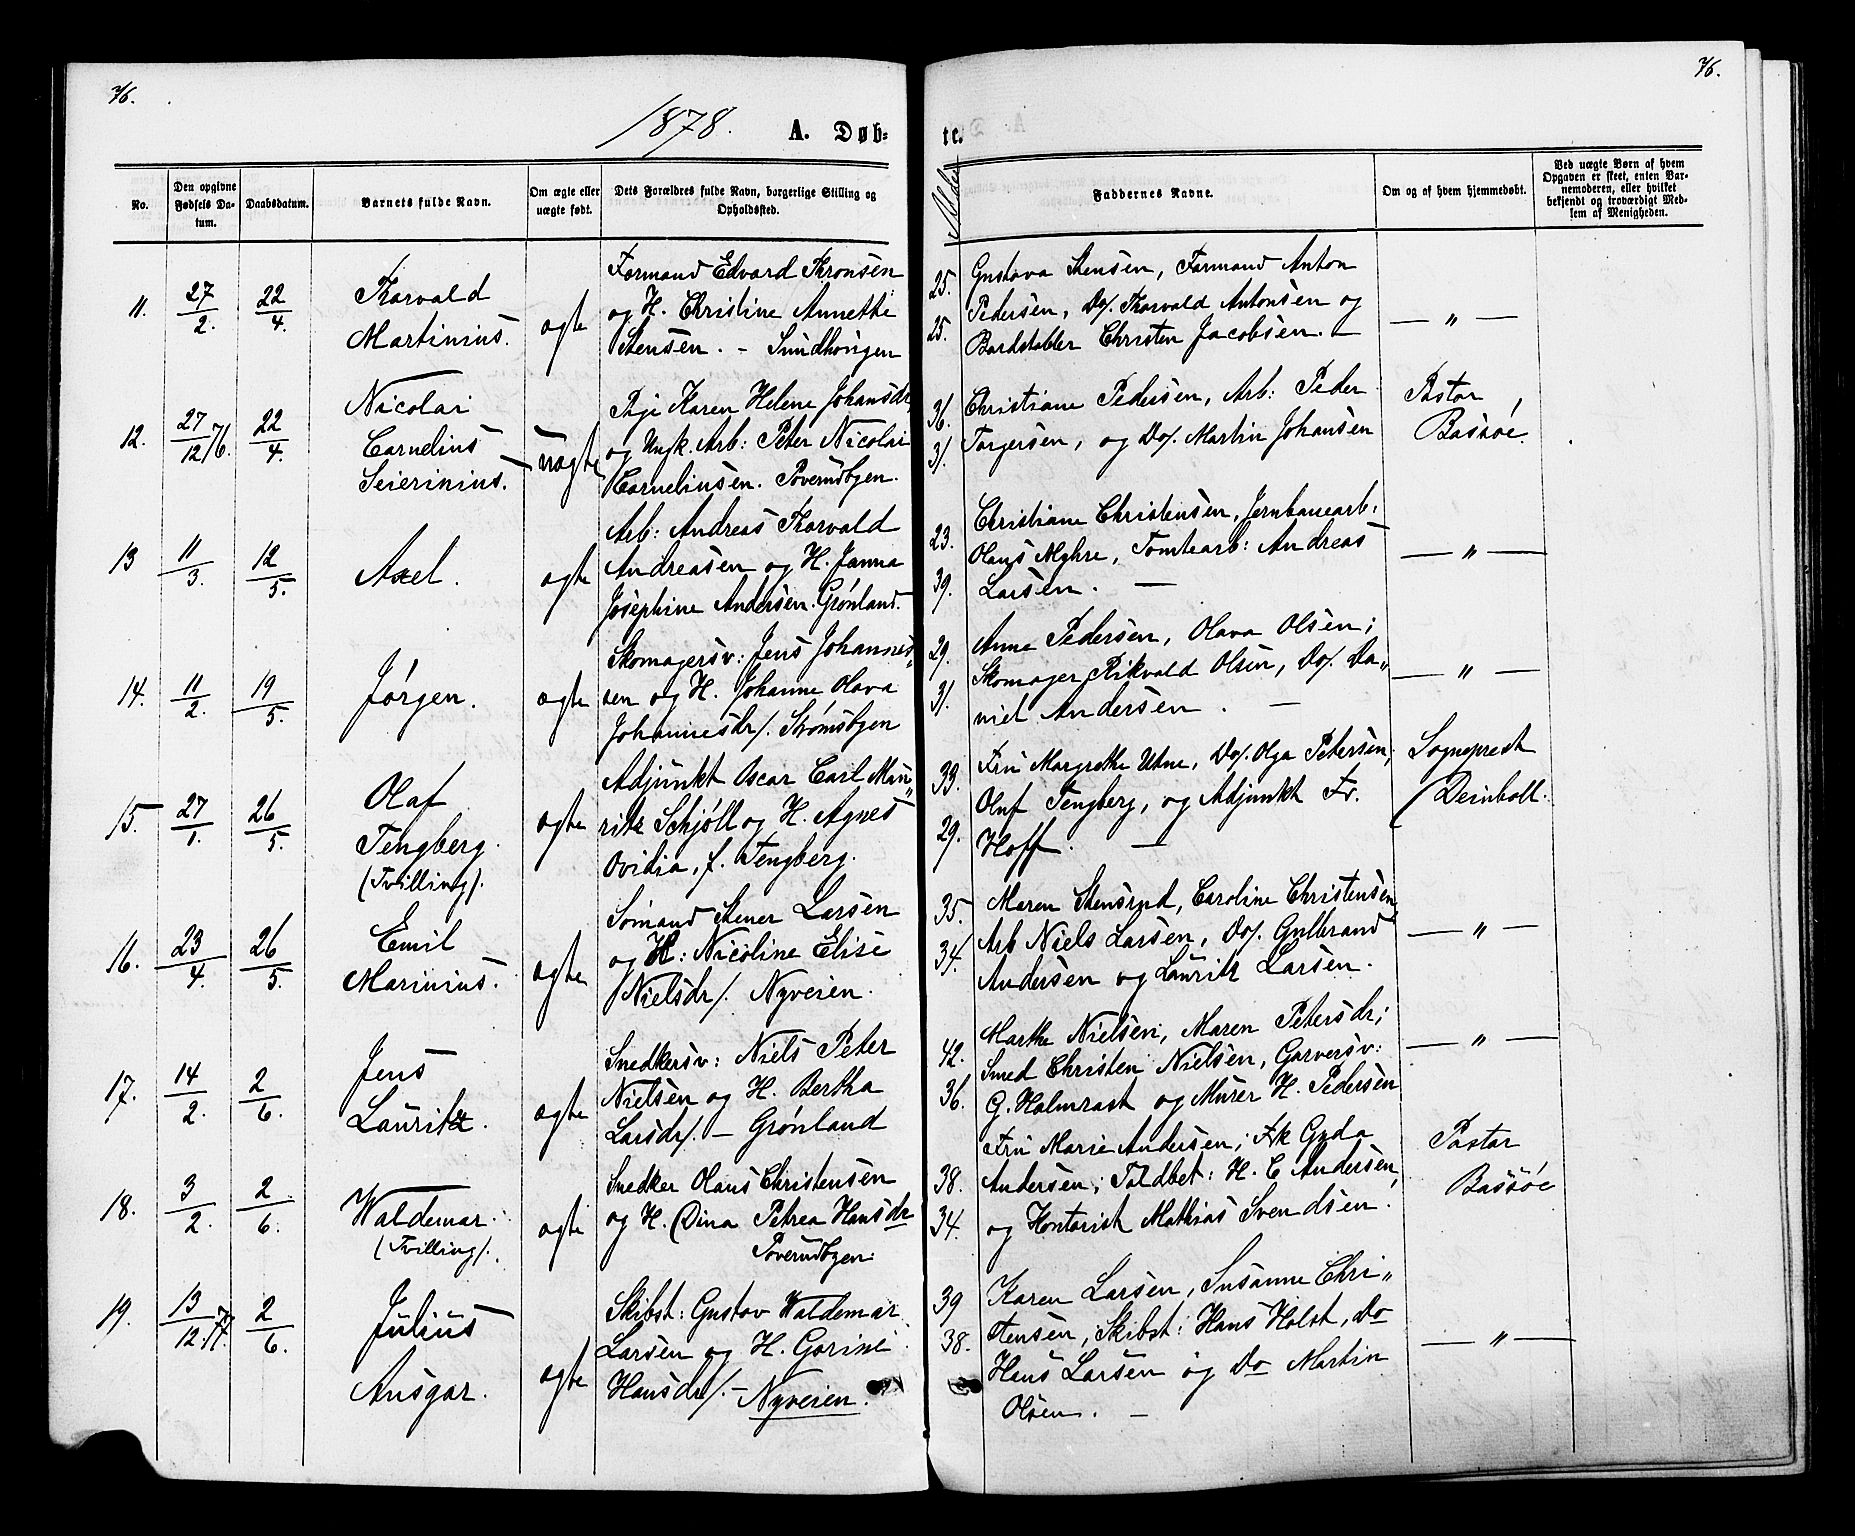 76.
76.
1878.
A. Døb-
te.
No.
Den opgivne Fødsels Datum.
Daabsdatum.
Barnets fulde Navn.
Om ægte eller uægte født.
Dets Forældres fulde Navn, borgerlige Stilling og Opholdssted.
Alder
Faddernes Navne.
Om og af hvem hjemmedøbt.
Ved uægte Børn af hvem
Opgaven er skeet, enten Bar-
nemoderen, eller hvilket
bekjendt og troværdigt Med-
lem af Menigheden.
11. 27/2. 22/4.
Thorvald
Martinius.
ægte
Formand Edvard Thronsen
og H. Christine Annette
Stensen. –
25.
25.
Gustava Stensen, Formand Anton
Pedersen, Do/. Thorvald Antonsen og
Christen Jacobsen. –
— " —
12. 27/12 76. 22/4.
Nicolai
Cornelius
Seierinius.
uægte
Pige Karen Helene Johansdr/
og Ungk. Arb: Peter Nicolai
Corneliusen. Poverudbyen.
36.
31
Christiane Pedersen, Arb: Peder
Torgersen, og Do/. Martin Johansen
Pastor
Bassøe.
13 11/3. 12/5.
Axel.
ægte
Arb: Andreas Thorvald
Andreasen og H. Janna
Josephine Andersen. Grønland.
23.
39.
Christiane Christensen, Jernbanearb.
Olaus Myhre, Tomtearb: Andreas
Larsen. —
— " —
14. 11/2. 19/5.
Jørgen.
ægte
Skomagersv: Jens Johannes„
sen og H. Johanne Olava
Johannesdr/. Strømsbyen
29.
31.
Anne Pedersen, Olava Olsen;
Skomager Rikvald Olsen, Do/. Da„
niel Andersen. —
— " —
15. 27/1. 26/5.
Olaf
Tengberg.
(Tvilling).
ægte
Adjunkt Oscar Carl Mau„
ritz Schjøll og H. Agnes
Ovidia, f. Tengberg.
33.
29.
Fru Margrethe Utne, Do/. Olga Petersen,
Oluf Tengberg, og Adjunkt Fr.
Hoff. —
Sogneprest
Deinboll.
16. 23/4. 26/5.
Emil
Marinius.
ægte
Sømand Stener Larsen
og H: Nicoline Elise
Nielsdr/. Nyveien.
35.
34.
Maren Stensrud, Caroline Christensen
Arb Niels Larsen, Do/. Gulbrand
Andersen og Lauritz Larsen.
— " —
17. 14/2. 2/6.
Jens
Lauritz.
ægte
Snedkersv: Niels Peter
Nielsen og H. Bertha
Larsdr/. – Grønland
42.
36.
Marthe Nielsen, Maren Petersdr;
Smed Christen Nielsen, Garversv:
G. Holmrast og Murer H. Pedersen
— " —
18. 3/2. 2/6.
Waldemar.
(Tvilling).
ægte
Snedker Olaus Christensen
og H. Dina Petrea Hansdr
Poverudbyen.
38.
34.
Fru Marie Andersen; Frk Gyda
Andersen; Toldbet: H. C Andersen,
og Kontorist Mathias Svendsen.
Pastor
Bassøe
19. 13/12.77. 2/6.
Julius
Ansgar.
ægte
Skibst: Gustav Waldemar
Larsen og H. Gorine
Hansdr/. – Nyveien.
39
38.
Karen Larsen, Susanne Chri„
stensen; Skibst: Hans Holst, Do
Hans Larsen og Do Martin
Olsen. —
— " —